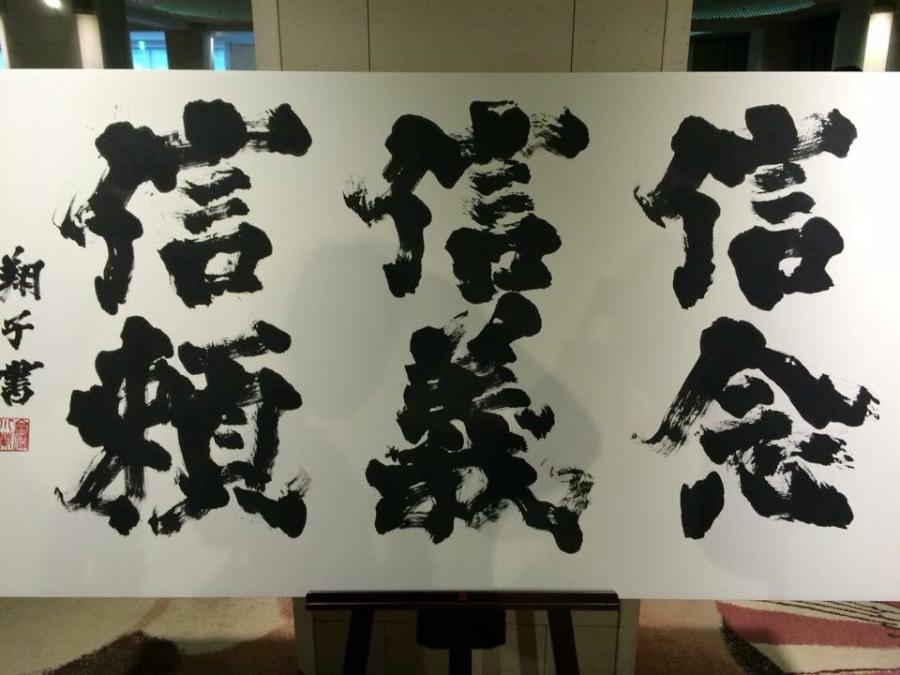 信念
信義
信頼
翔子書